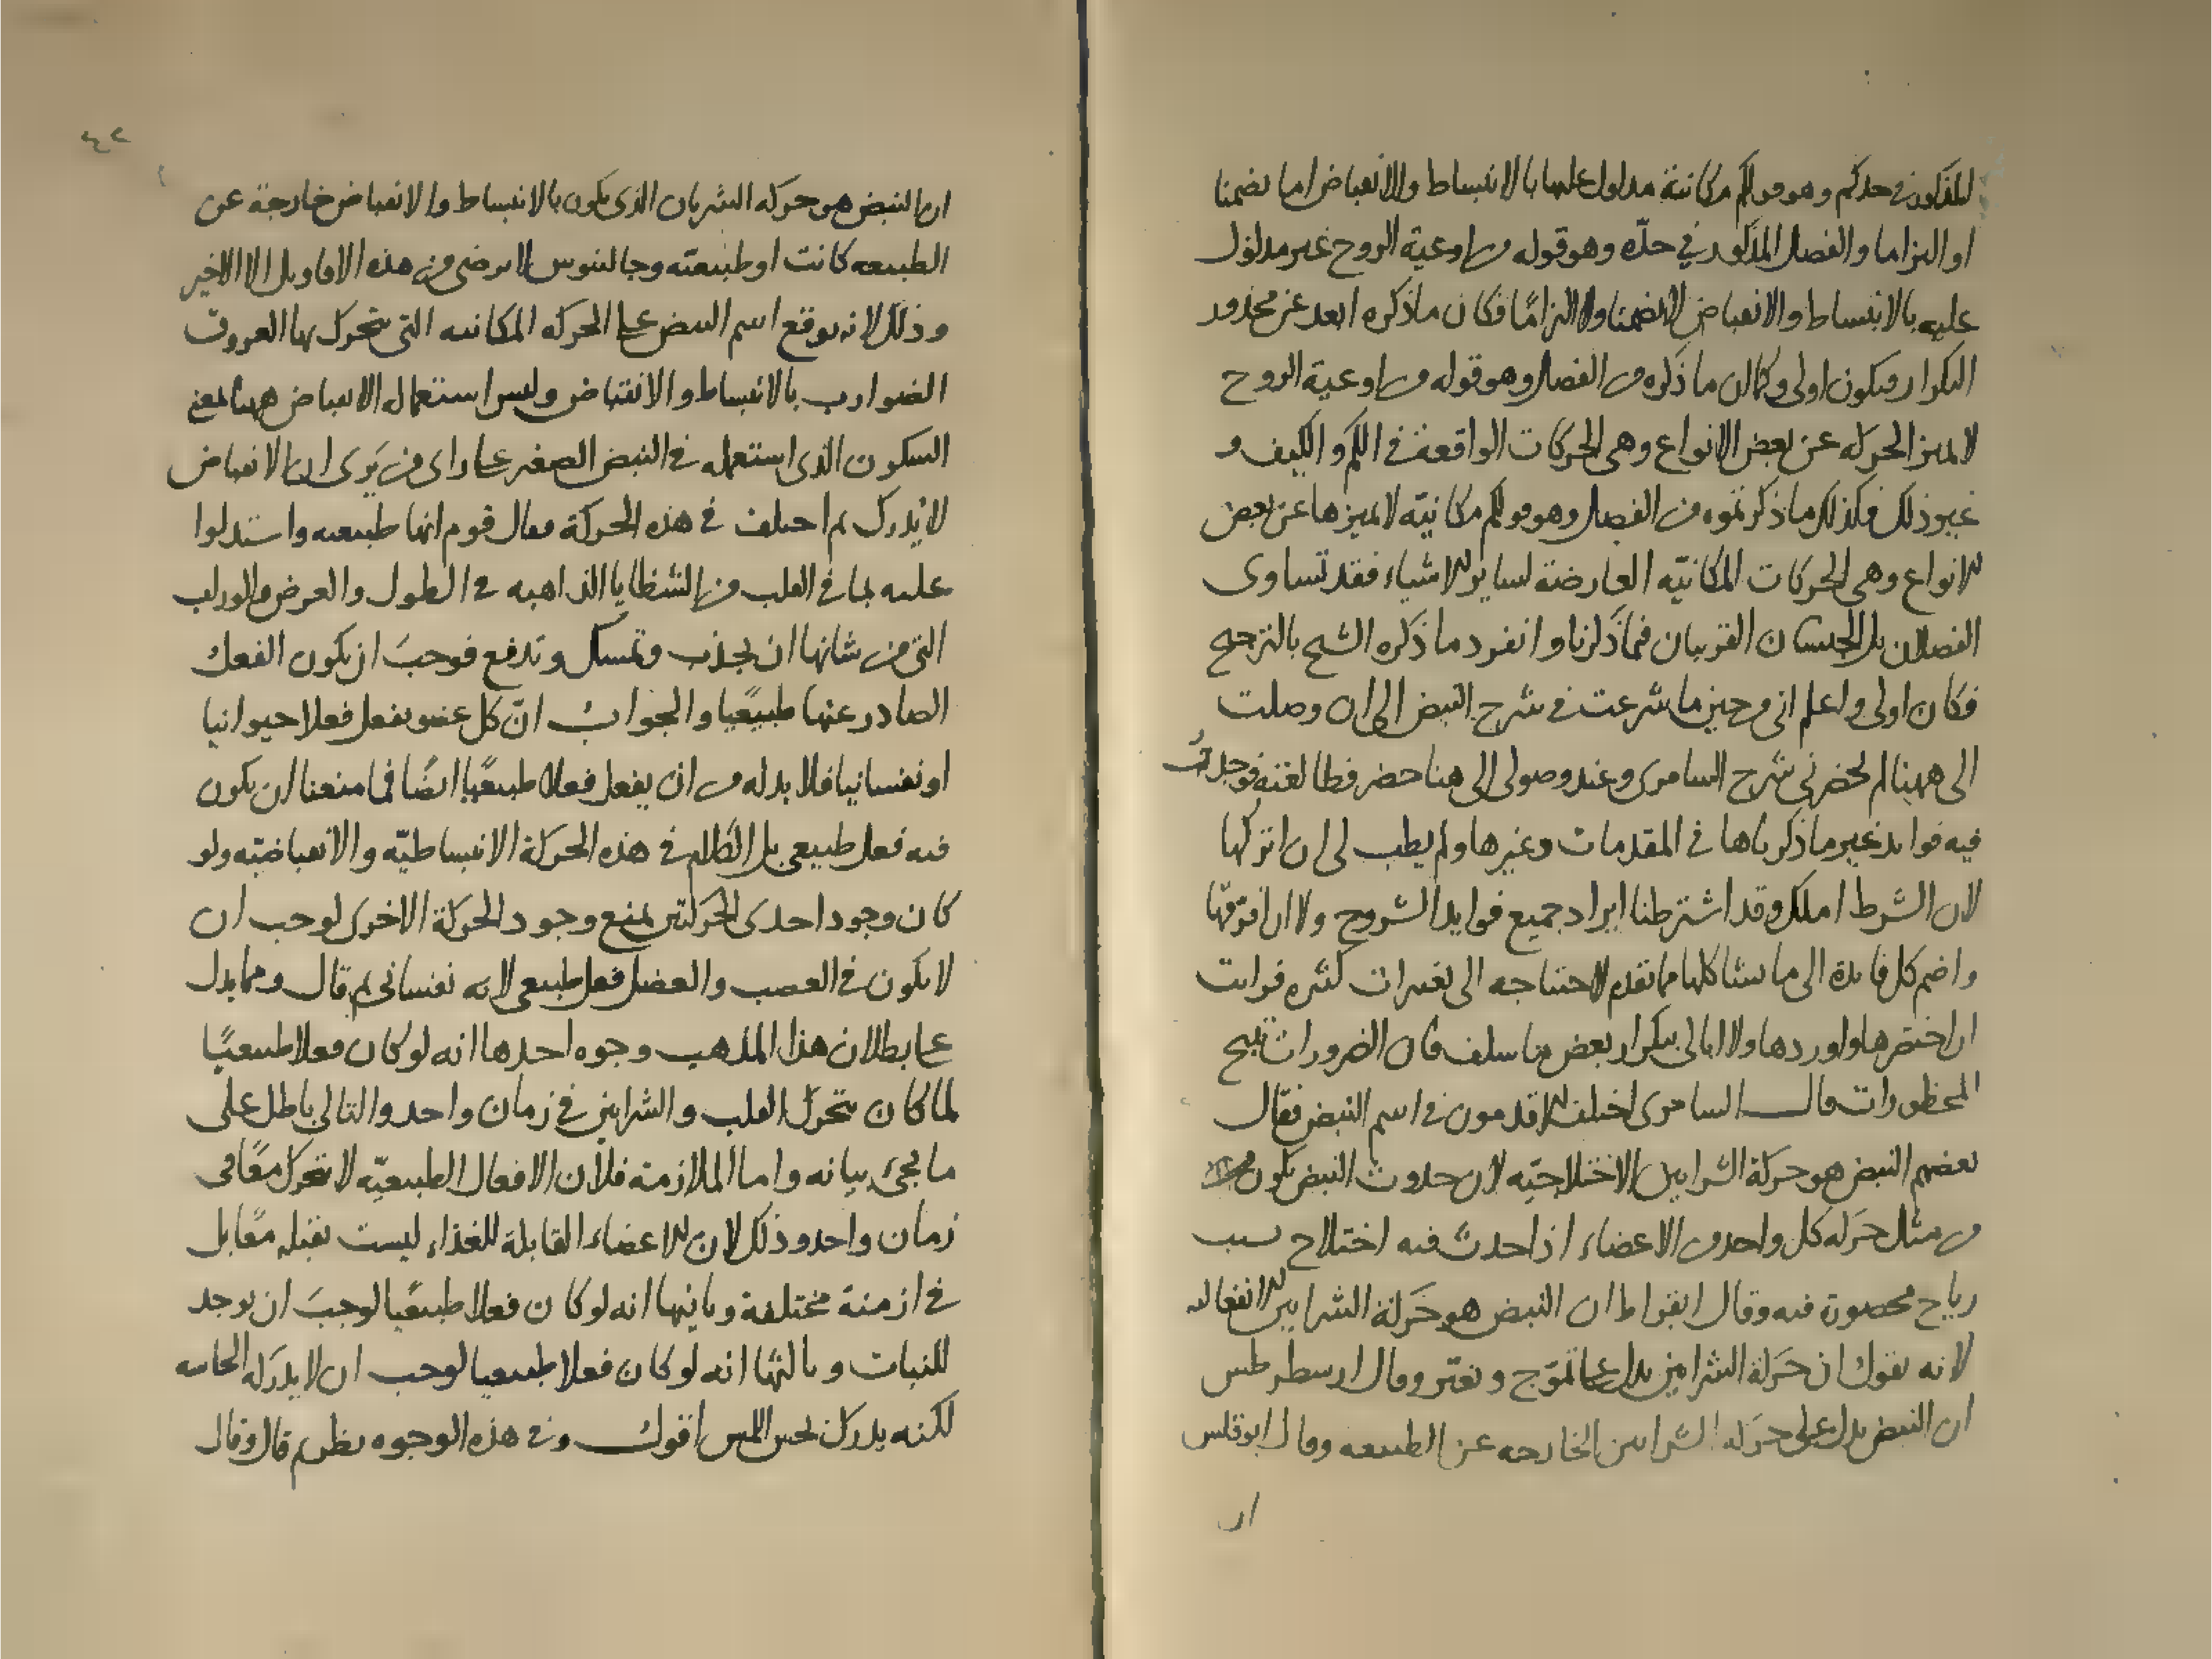 المذكور في حدكم وهو قولكم مكانية مدلول عليها بالانبساط والانقباض اما تضمنا
او التزاما والفصل المذكور في حدّه وهو قوله من اوعية الروح غير مدلول
عليه بالانبساط والانقباض لا تضمنا ولا التزامًا فكان ما ذكره ابعد عن محذور
التكرار فيكون اولى وكما ان ما ذكره من الفصل وهو قوله من اوعية الروح
لا يميز الحركة عن بعض الانواع وهي الحركات الواقعة في الكم والكيف و
غير ذلك فكذلك ما ذكرتموه من الفصل وهو قولكم مكانيّة لا يميزها عن بعض
الانواع وهي الحركات المكانيّة العارضة لساير الاشياء فقد تساوى
الفصلان بل الجنسان القريبان فيما ذكرنا وانفرد ما ذكره الشيخ بالترجيح
فكان اولى واعلم اني من حين ما شرعت في شرح النبض الى ان وصلت
الى ههنا لم يحضرني شرح السامري وعند وصولي الى هنا حضر فطالعته فوجدتُ
فيه فوايد غير ما ذكرناها في المقدمات وغيرها ولم يطب لي ان اتركها
لان الشرط املك وقد اشترطنا ايراد جميع فوايد الشروح ولا ان افرّقها
واضم كل فايدة الى ما يشاكلها مما تقدم لاحتياجه الى تغييرات كثيره فرايت
ان اختصرها واوردها ولا ابالي بتكرار بعض ما سلف فان الضرورات تبيح
المحظورات قال السامري اختلف الاقدمون في اسم النبض فقال
بعضهم النبض هو حركة الشرايين الاختلاجيّه لان حدوث النبض يكون
من مثل حركه كل واحد من الاعضاء اذا حدث فيه اختلاج بسبب
رياح محصورة فيه وقال ابقراط ان النبض هو حركة الشرايين الانفعاليه
لانه يقول ان حركة الشرايين يدل على تموّج و تغيّر وقال ارسطرطس
ان النبض يدل على حركه الشرايين الخارجه عن الطبيعه وقال ابوقلس
ان
ان النبض هو حركه الشريان الذي يكون بالانبساط والانقباض خارجة عن
الطبيعه كانت او طبيعيّه وجالينوس لا يرضى من هذه الاقاويل الا الاخير
وذلك لانه يوقع اسم النبض على الحركه المكانيه التي يتحرك بها العروق
الضوارب بالانبساط والانقباض وليس استعماله الانقباض ههنا بمعنى
السكون الذي استعمله في النبض الصغير على راي من يَرى ان الانقباض
لا يُدرك ثم اختلف في هذه الحركة فقال قوم انها طبيعيه واستدلوا
عليه بما في القلب من الشظايا الذاهبه في الطول والعرض والوراب
التي من شانها ان يجذب وتمسك و تدفع فوجبَ ان يكون الفعل
الصادر عنها طبيعيًا والجوابُ انّ كل عضو يفعل فعلا حيوانيا
او نفسانيا فلا بد له من ان يفعل فعلا طبيعيًا ايضًا فما منعنا ان يكون
فيه فعل طبيعي بل الكلام في هذه الحركة الانبساطيّه والانقباضيّه ولو
كان وجود احدى الحركتين يمنع وجود الحركة الاخرى لوجب ان
لا يكون في العصب والعضل فعل طبيعي لانه نفساني ثم قال ومما يدل
على بطلان هذا المذهب وجوه احدها انه لو كان فعلا طبيعيًا
لما كان يتحرك القلب والشرايين في زمان واحد والتالي باطل على
ما يجيء بيانه واما الملازمة فلأن الافعال الطبيعيّه لا تتحرك معًا في
زمان واحد وذلك لان الاعضاء القابلة للغذاء ليست تقبله معًا بل
في ازمنة مختلفة وثانيها انه لو كان فعلا طبيعيًا لوجبَ ان يوجد
للنبات وثالثها انه لو كان فعلا طبيعيا لوجب ان لا يدركه الحاسه
لكنه يدرك بحس اللمس اقول وفي هذه الوجوه نظر ثم قال وقال